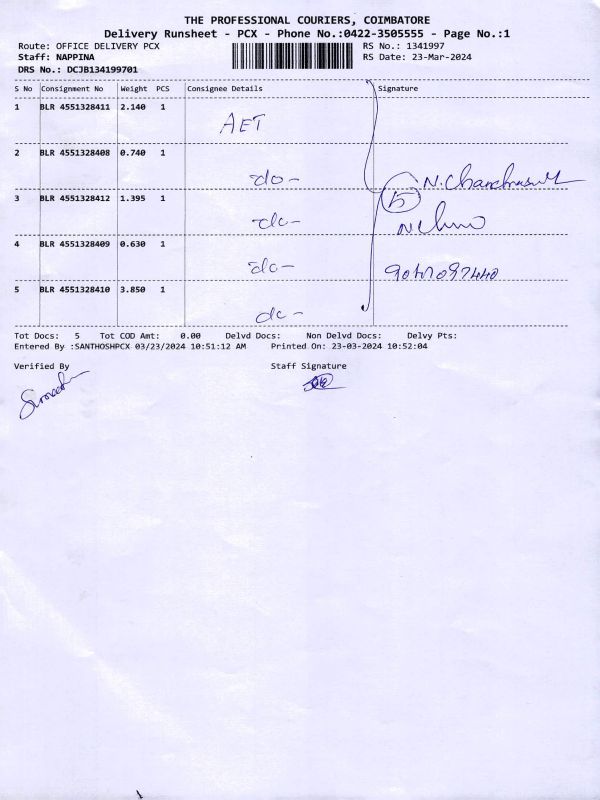 THE PROFESSIONAL COURIERS, COIMBATORE
Delivery Runsheet - PCX - Phone No.:0422-3505555 - Page No.:1
Route: OFFICE DELIVERY PCX RS No.: 1341997
Staff: NAPPINA RS Date: 23-Mar-2024
DRS No.: DCJB134199701
S No Consignment No Weight PCS Consignee Details Signature
1 BLR 4551328411 2.140 1 AET
2 BLR 4551328408 0.740 1 -do-
3 BLR 4551328412 1.395 1 -do-
4 BLR 4551328409 0.630 1 -do-
5 BLR 4551328410 3.850 1 -do-
5
Tot Docs: 5 Tot COD Amt: 0.00 Delvd Docs: Non Delvd Docs: Delvy Pts:
Entered By :SANTHOSHPCX 03/23/2024 10:51:12 AM Printed On: 23-03-2024 10:52:04
Verified By Staff Signature